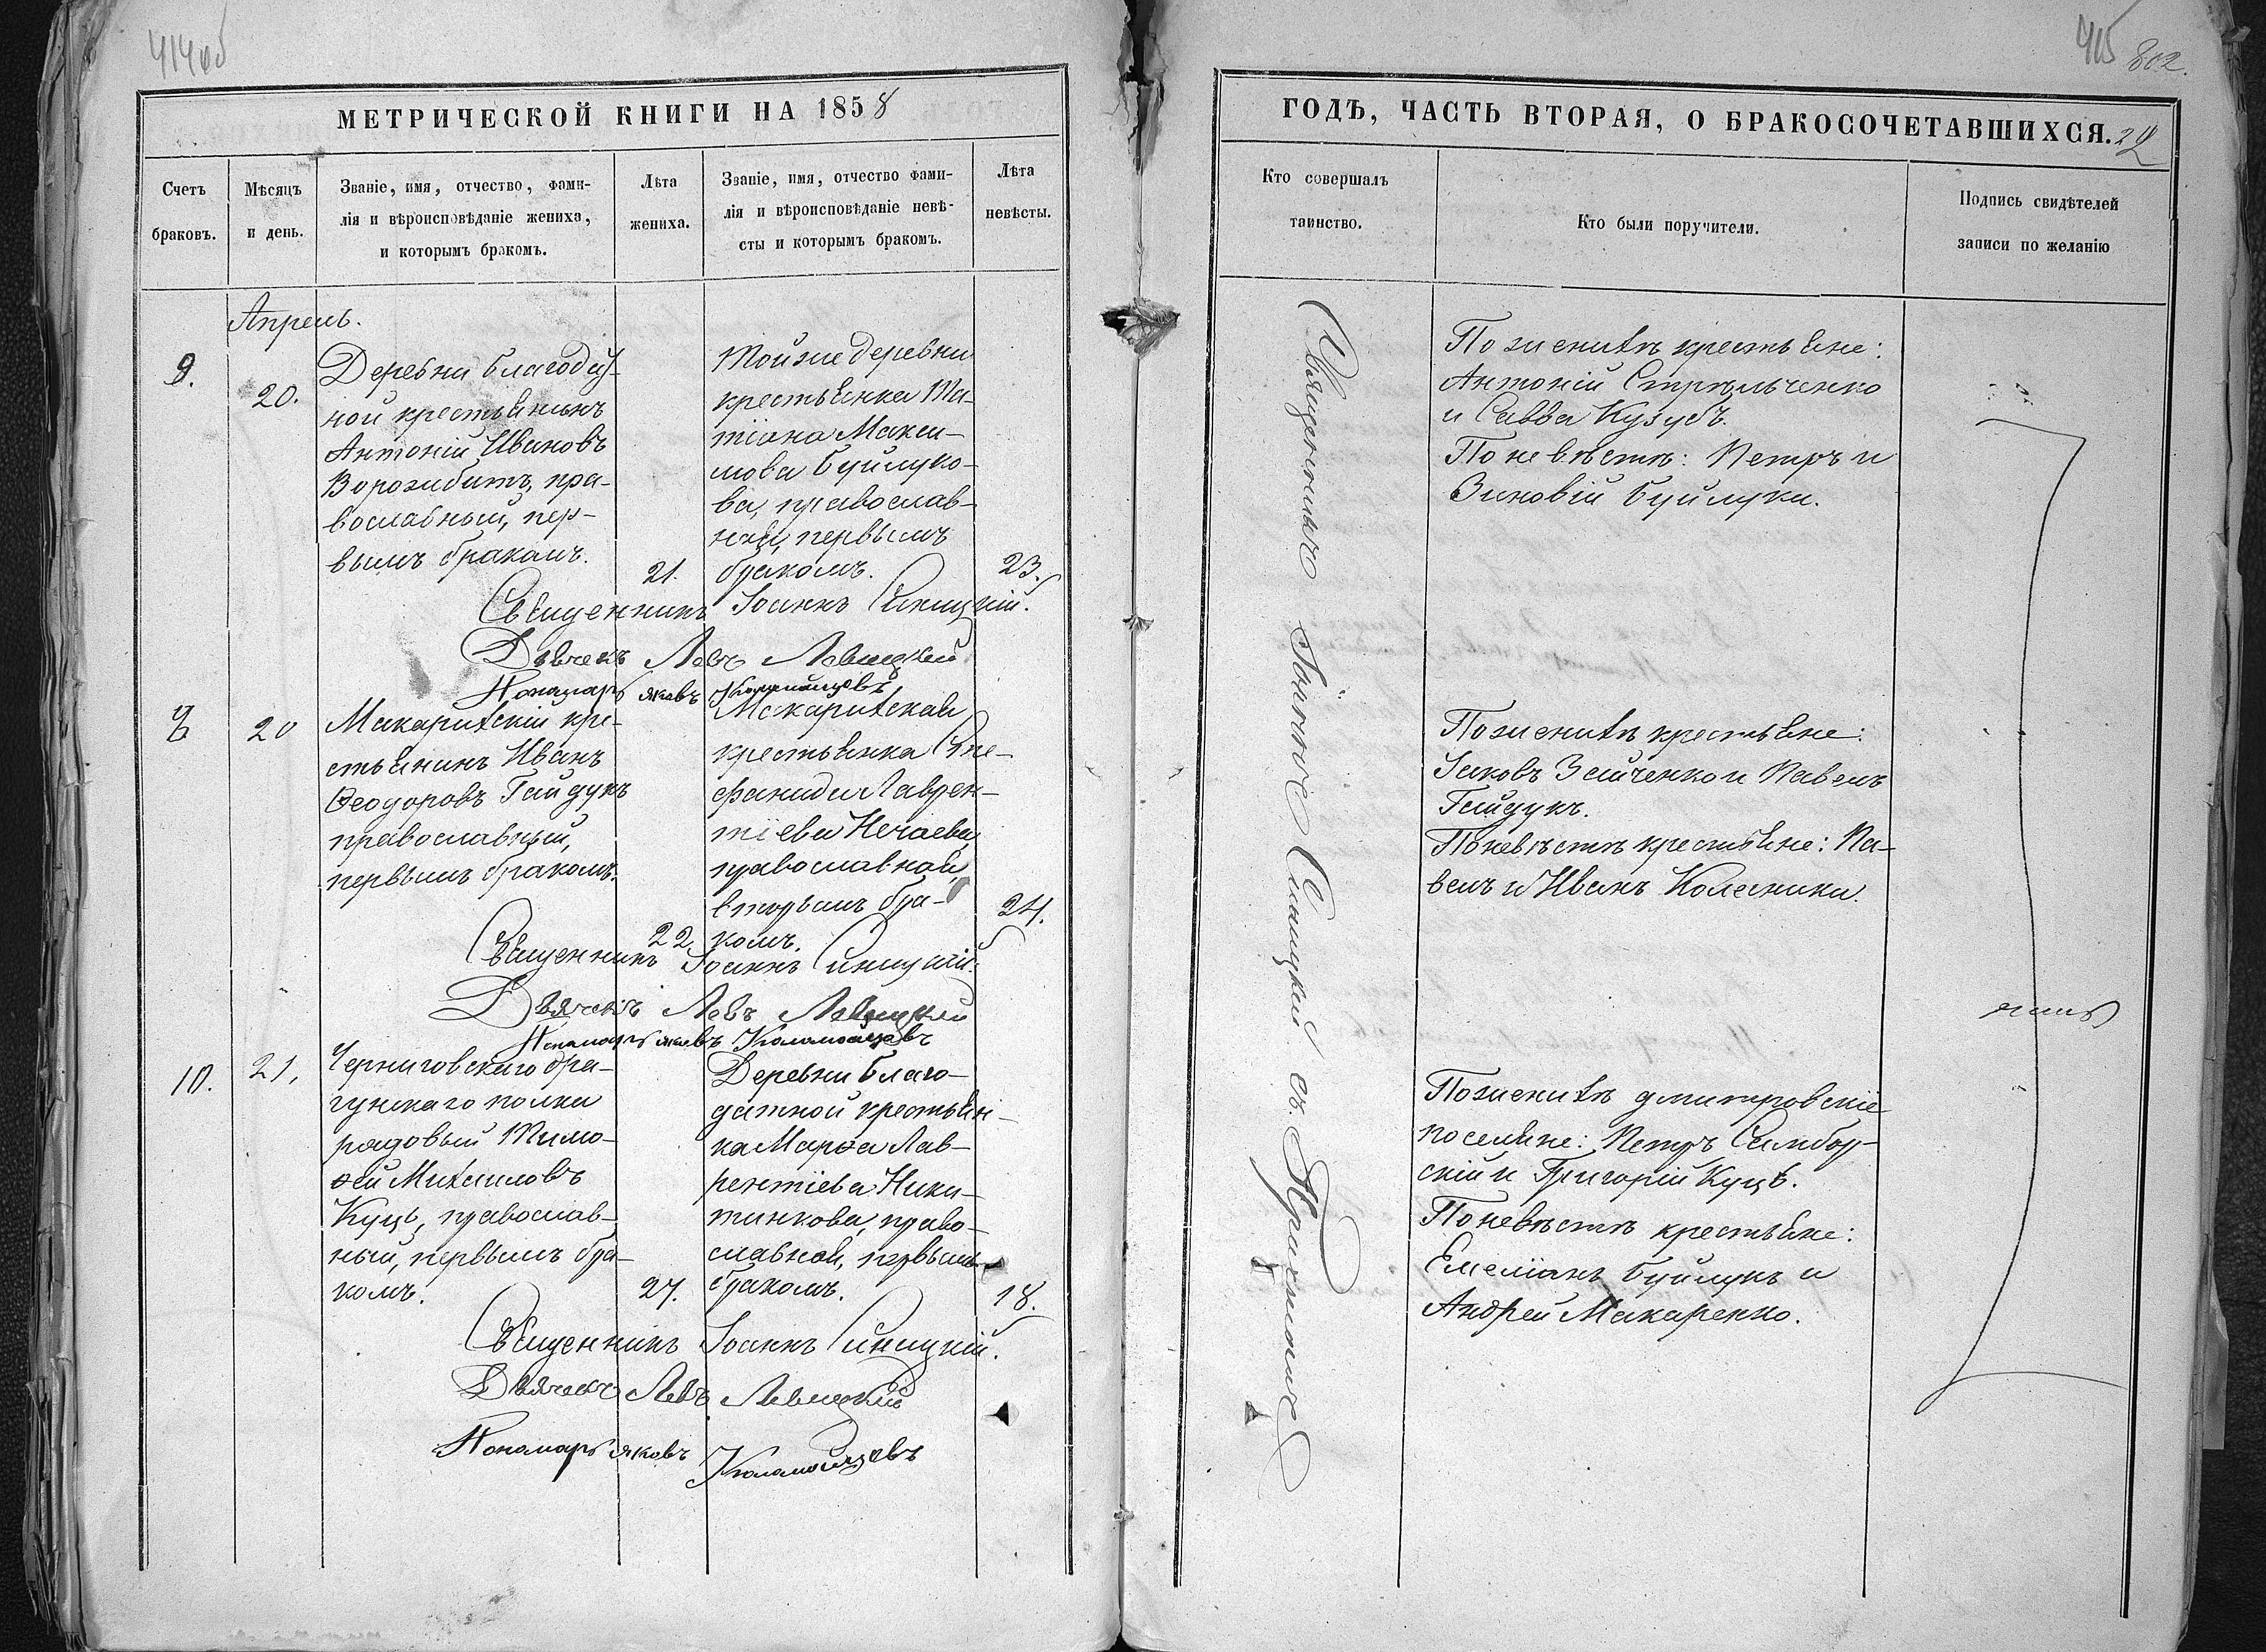 414об
МЕТРИЧЕСКОЙ КНИГИ НА 1858
Счетъ
браковъ.
Мѣсяцъ
и день.
Званіе, имя, отчество, фами-
лія и вѣроисповѣданіе жениха,
и которымъ бракомъ.
Лѣта
жениха.
Званіе, имя, отчество фами-
лія и вѣроисповѣданіе невѣ-
сты и которымъ бракомъ.
Лѣта
невѣсты.
Апрель.
9.
20.
Деревни благодат-
ной крестьянинъ
Антоній Ивановъ
Ворожбитъ, пра-
вославный, пер-
вымъ бракомъ.
21.
Той же деревни
крестьянка Та-
тіана Макси-
мова Буйлуко-
ва, православ-
ной, первымъ
бракомъ.
23.
Священникъ Іоаннъ Синицкій.
Дьячекъ Левъ Левицкій
Пономарь Яковъ Коломойцовъ
20
Макарихскій кре-
стьянинъ Иванъ
Ѳеодоровъ Гайдукъ
православный,
первымъ бракомъ.
22.
Макарихская
крестьянка Сте-
фанида Лаврен-
тіева Нечаева,
православной,
вторымъ бра-
комъ.
24.
Священникъ Іоаннъ Синицкій.
Дьячекъ Левъ Левицкій
Пономарь Яковъ Коломойцовъ
10.
21.
Черниговскаго дра-
гунскаго полка
рядовый Тимо-
ѳей Михаиловъ
Куць, православ-
ный, первымъ бра-
комъ.
27.
Деревни Благо-
датной крестьян-
ка Марѳа Лав-
рентіева Ники-
тинкова, право-
славной, первымъ
бракомъ.
18.
Священникъ Іоаннъ Синицкій.
Дьячекъ Левъ Левицкій
Пономарь Яковъ Коломойцовъ
415
802.
ГОДЪ, ЧАСТЬ ВТОРАЯ, О БРАКОСОЧЕТАВШИХСЯ.
Кто совершалъ
таинство.
Кто были поручители.
Подпись свидѣтелей
записи по желанію
Священникъ Іоаннъ Синицкій съ Причтомъ
По женихѣ крестьяне:
Антоній Стрѣльченко
и Савва Кузубъ.
По невѣстѣ: Петръ и
Зиновій Буйлуки.
По женихѣ крестьяне:
Іаковъ Зайченко и Павелъ
Гайдукъ.
По невѣстѣ крестьяне: Па-
велъ и Иванъ Колесники.
По женихѣ дмитровскіе
поселяне: Петръ Самбор-
скій и Григорій Куць.
По невѣстѣ крестьяне:
Емеліанъ Буйлукъ и
Андрей Макаренко.